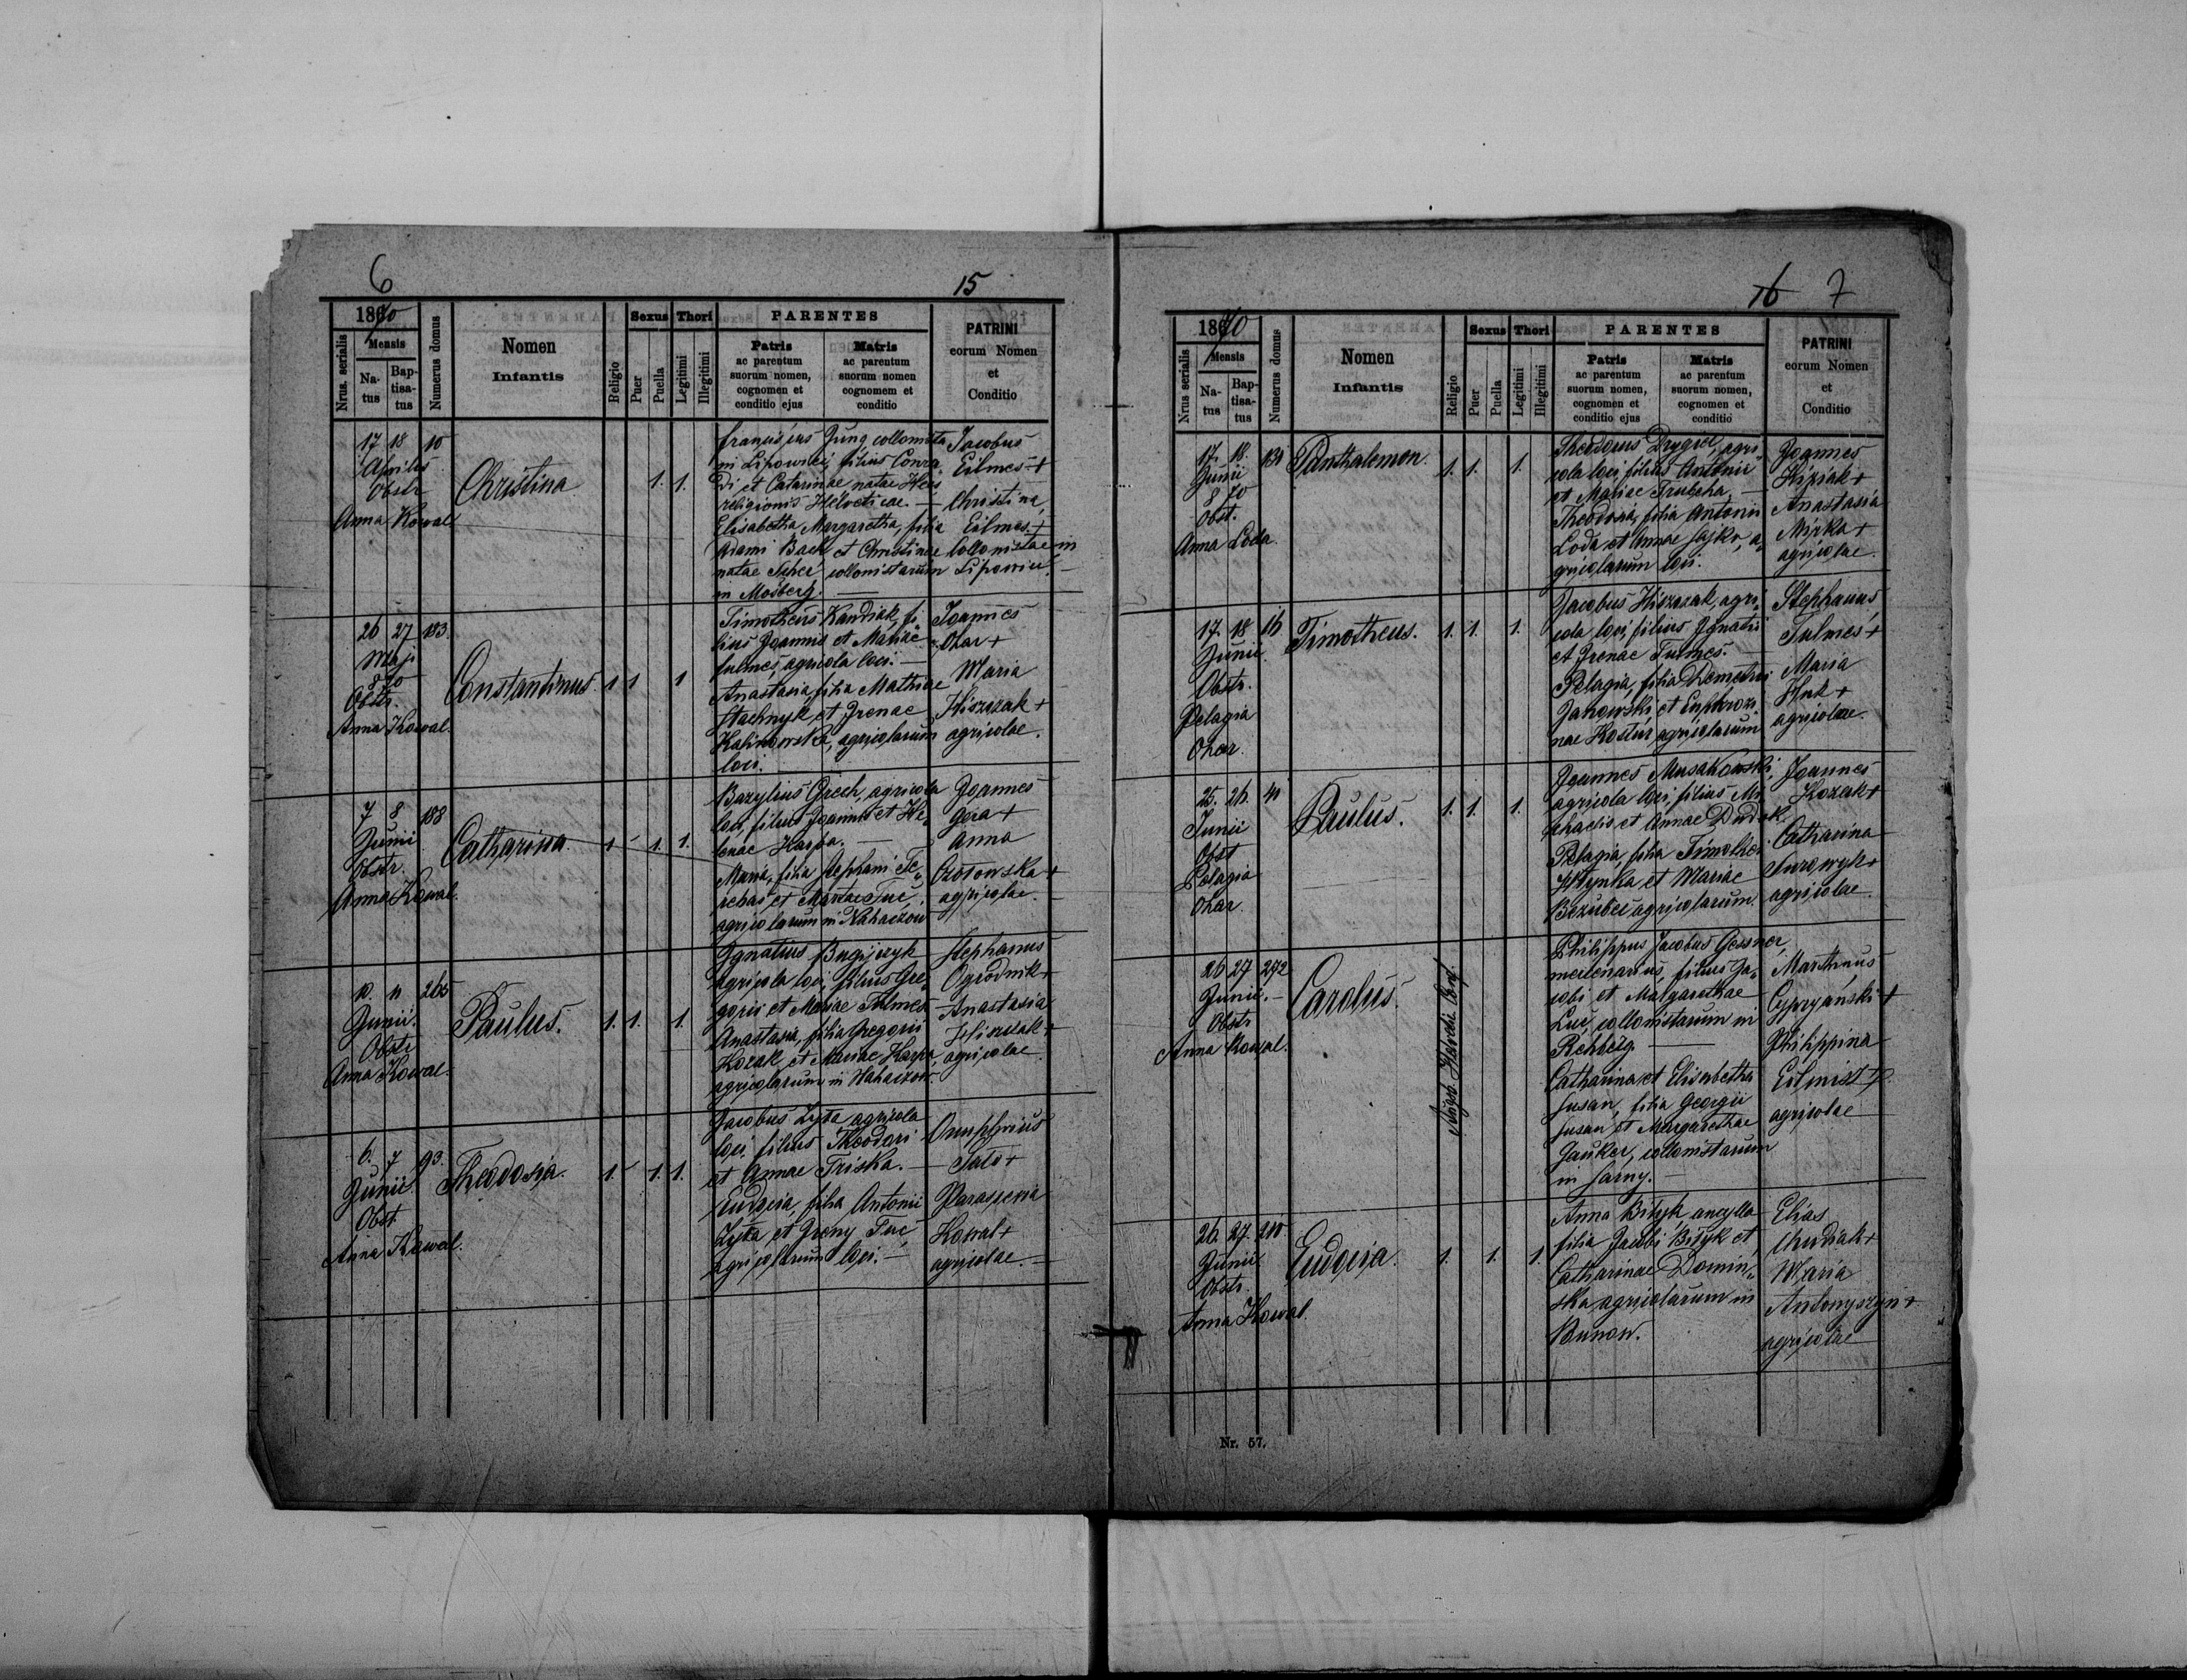 6
15
1890
Nrus. serialis
Mensis
Natus
Baptisatus
Numerus domus
Nomen
Infantis
Religio
Sexus
Puer
Puella
Thori
Legitimi
Illegitimi
PARENTES
Patris
ac parentum
suorum nomen,
cognomen et
conditio ejus
Matris
ac parentum
suorum nomen
cognomem et
conditio
PATRINI
eorum Nomen
et
Conditio
17 18 10
Aprilis
Obstr
Anna Kowal
Christina
1. 1.
Franciscus Jung collonista
in Lipowiec, filius Conra
di et Catarinae natae
religionis Helveticae. —
Elisabetha Margaretha, filia
Adami Bach et Christinae
natae collonistarum
in Mosberg. —
Jacobus
Eilmes +
Christina
Eilmes +
Collonistae in
Lipowiec. —
26 27 183.
Maji
Obstr.
Anna Kowal.
Constantinus.
1 1 1
Timotheus Kandiak, fi„
lius Joannis et Mariae
Tulmes, agricola loci. —
Anastasia, filia Mathiae
Stachnyk et Irenae
Kalinowska, agricolarum
loci.
Joannes
Ohar +
Maria
Hiszczak +
agricolae.
7 8 188
Junii
Obstr.
Anna Kowal.
Catharina
1 1. 1.
Bazylius Grech, agricola
loci, filius Joannis et He„
lenae Harpa. —
Maria, filia Stephani Te„
rebas et Martae Tuć,
agricolarum in Nahaczow
Joannes
Gera +
Anna
Ozotowska +
agricolae. —
10. 11 265
Junii.
Obstr
Anna Kowal.
Paulus.
1. 1. 1.
Ignatius Bugijczyk
agricola loci, filius Gre„
gorii et Mariae Tulmes
Anastasia, filia Gregorii
Kozak et Mariae Harpa,
agricolarum in Nahaczow.
Stephanus
Ogrodnik +
Anastasia
Hiszczak +
agricolae.
6. 7 93.
Junii.
Obst.
Anna Kowal.
Theodosia.
1. 1. 1.
Jacobus Zyta agricola
loci, filius Theodori
et Annae Triska. —
Eudocia, filia Antonii
Zyta et Ireny Tuć,
agricolarum loci. —
Onuphrius
Sało +
Parascevia
Kowal +
agricolae. —
16 7
1890
Nrus serialis
Mensis
Natus
Baptisatus
Numerus domus
Nomen
Infantis
Religio
Sexus
Puer
Puella
Thori
Legitimi
Illegitimi
PARENTES
Patris
ac parentum
suorum nomen,
cognomen et
conditio ejus
Matris
ac parentum
suorum nomen,
cognomen et
conditio
PATRINI
eorum Nomen
et
Conditio
17. 18. 131
Junii
Obst.
Anna Loda.
Panthalemon.
1. 1. 1.
Theodorus Drygiel, agri„
cola loci, filius Antonii
et Mariae Trubcha. —
Theodosia, filia Antonii
Loda et Annae Sajko, a„
gricolarum loci.
Joannes
Hiziak +
Anastasia
Mirka +
agricolae.
17. 18 16
Junii.
Obstr.
Pelagia
Ohar.
Timotheus.
1. 1. 1.
Jacobus Hiszczak, agri„
cola loci, filius Ignatii
et Irenae Tulmes. —
Pelagia, filia Demetrii
Janowski et Euphrozi„
nae Kostur, agricolarum
Stephanus
Tulmes +
Maria
Huk +
agricolae.
25. 26. 41
Junii
Obst
Pelagia
Ohar.
Paulus.
1. 1. 1.
Joannes Musakowski,
agricola loci, filius Mi
chaelis et Annae Dudok
Pelagia, filia Timothei
Hłynka et Mariae
Bezubec agricolarum.
Joannes
Kozak +
Catharina
Surowyk +
agricolae.
26 27 272
Junii. —
Obstr
Anna Kowal.
Carolus.
Augsb. Helveti. Conf.
Philippus Jacobus Gessner,
mercenarius, filius Ja„
cobi et Margarethae
Luć, collonistarum in
Rehberg. —
Catharina et Elisabetha
Susan, filia Georgii
Susan et Margarethae
Gauker, collonistarum
in Sarny. —
Marthinus
Cypryanski +
Philippina
Eilmist +
agricolae
26. 27. 210
Junii
Obstr.
Anna Kowal.
Eudocia.
1. 1. 1.
Anna Bityk ancylla
filia Jacobi Bityk et
Catharinae Domin„
ska agricolarum in
Bunow.
Elias
Chudiak +
Maria
Antonyszyn +
agricolae
Nr. 57.